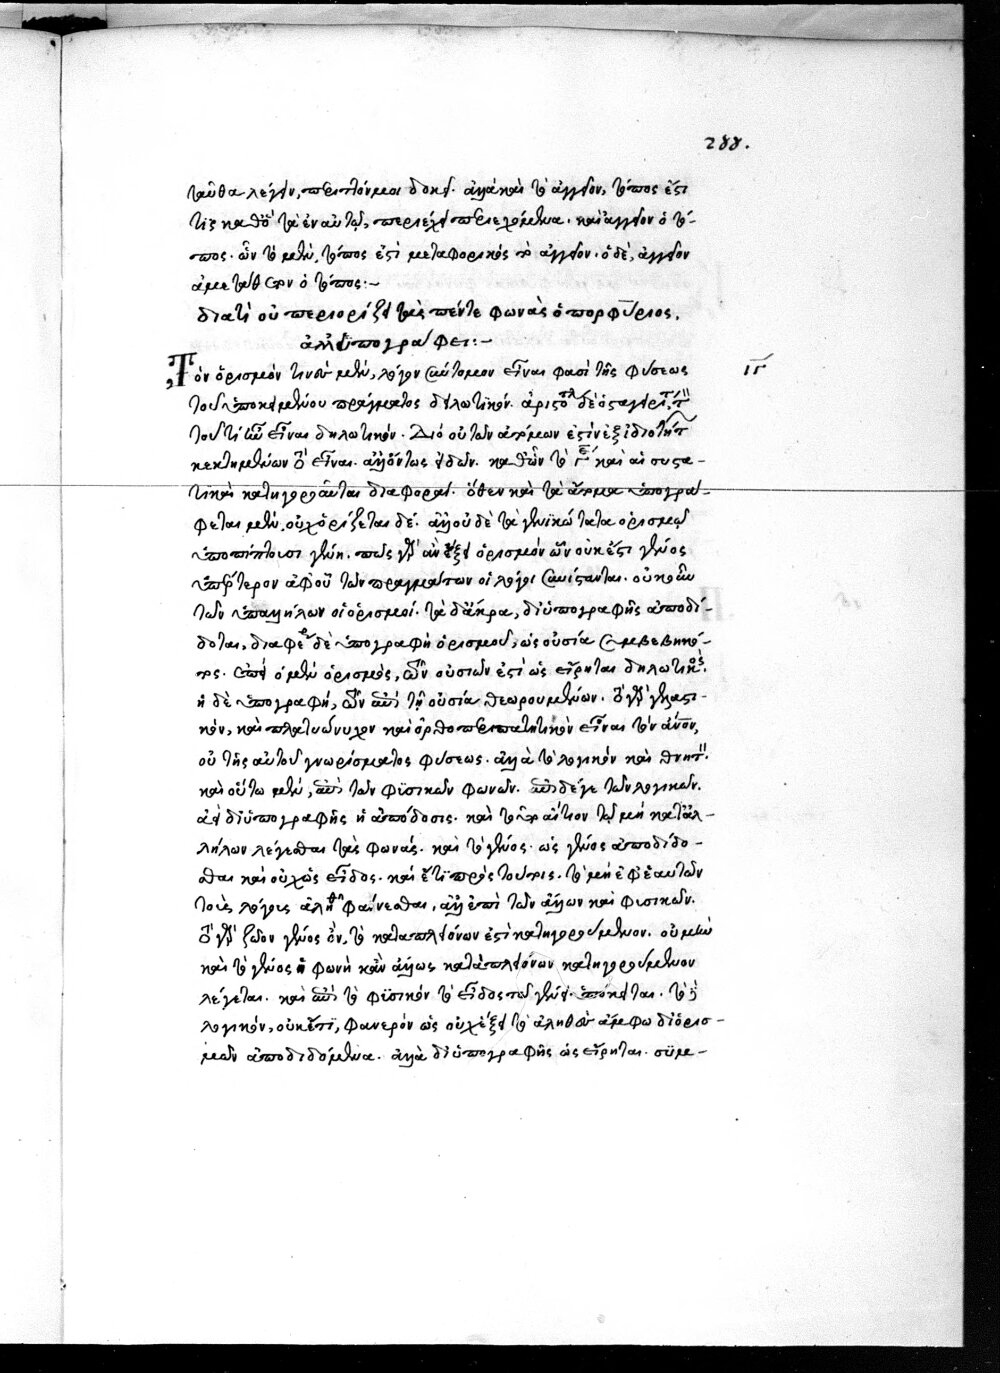 288.
ταῦθα λέγειν, περιπλόνμσοι δοκεῖ. ἀλλὰ καὶ τὸ ἀγγεῖον, τόπος ἐστί
τις καθὸ τὰ ἐν αὐτῷ, περιέχει περιεχόμενα. καὶ ἀγγεῖον ὁ τό-
πος. ὧν τὸ μὲν, τόπος ἐστὶ μεταφορικὸς τὸ ἀγγεῖον. ὁ δὲ, ἀγγεῖον
ἀμετάθετον ὁ τόπος:-
διατί οὐ περιορίζει τὰς πέντε φωνὰς ὁ πορφύριος,
ἀλλ' ὑπογράφει:-
Τὸν ὁρισμὸν τινὲς μὲν, λόγον σύντομον εἶναι φασὶ τῆς φύσεως
ιγ
τοῦ ὑποκειμένου πράγματος δηλωτικόν. ἀριστοτέλης δὲ ὁ σταγειρίτης, τὸν
τοῦ τί ἦν εἶναι δηλωτικόν. Διὸ οὐ τῶν ἀτόμων ἐστὶν ἐξ ἰδιοτήτων
κεκτημένων τὸ εἶναι. ἀλλ' ὄντως εἰδῶν. καθ' ὧν τὸ γένος καὶ αἱ συστα-
τικαὶ κατηγοροῦνται διαφοραί. ὅθεν καὶ τὰ ἄτομα ὑπογρά-
φεται μὲν, οὐχ ὁρίζεται δέ. ἀλλ' οὐδὲ τὰ γενικώτατα ὁρισμῷ
ὑποπίπτουσι γένη. πῶς γὰρ ἂν ἕξει ὁρισμὸν ὧν οὐκ ἔστι γένος
πρότερον ἀφ' οὗ τῶν πραγμάτων οἱ λόγοι συνίστανται. οὐκοῦν
τῶν ὑπαλλήλων οἱ ὁρισμοί. τὰ δ' ἄκρα, δι' ὑπογραφῆς ἀποδί-
δοται, διαφέρει δὲ ὑπογραφὴ ὁρισμοῦ, ὡς οὐσία συμβεβηκό-
τος. ἐπεὶ ὁ μὲν ὁρισμὸς, τῶν οὐσιῶν ἐστὶ ὡς εἴρηται δηλωτικός.
ἡ δὲ ὑπογραφὴ, τῶν περὶ τῇ οὐσίᾳ θεωρουμένων. τὸ γὰρ γελαστι-
κὸν, καὶ πλατυώνυχον καὶ ὀρθοπεριπατητικὸν εἶναι τὸν ἄνθρωπον,
οὐ τῆς αὐτοῦ γνωρίσματος φύσεως. ἀλλὰ τὸ λογικὸν καὶ θνητόν.
καὶ οὕτω μὲν, ἐπὶ τῶν φυσικῶν φωνῶν. ἐπὶ δέ γε τῶν λογικῶν.
ἀεὶ δι' ὑπογραφῆς ἡ ἀπόδοσις. καὶ τὸ αἴτιον τῷ μὴ καταλ-
λήλων λέγεσθαι τὰς φωνάς. καὶ τὸ γένος. ὡς γένος ἀποδίδο-
σθαι καὶ οὐχ ὡς εἶδος. καὶ ἔτι πρὸς τούτοις. τὸ μὴ ἐφ' ἑαυτῶν
τοὺς λόγους ἀληθῆ φαίνεσθαι, ἀλλ' ἐπὶ τῶν ἄλλων καὶ φυσικῶν.
τὸ γὰρ ζῶον γένος ὂν, τὸ κατὰ πλειόνων ἐστὶ κατηγορούμενον. οὐ μὴν
καὶ τὸ γένος ἡ φωνὴ κἂν ἄλλως κατὰ πλειόνων κατηγορούμενον
λέγεται. καὶ ἐπὶ τὸ φυσικὸν τὸ εἶδος τῷ γένει ὑπόκειται. τὸ δὲ
λογικὸν, οὐκέτι, φανερὸν ὡς οὐχ ἕξει τὸ ἀληθὲς ἄμφω δι' ὁρισ-
μῶν ἀποδιδόμενα. ἀλλὰ δι' ὑπογραφῆς ὡς εἴρηται. συμε-